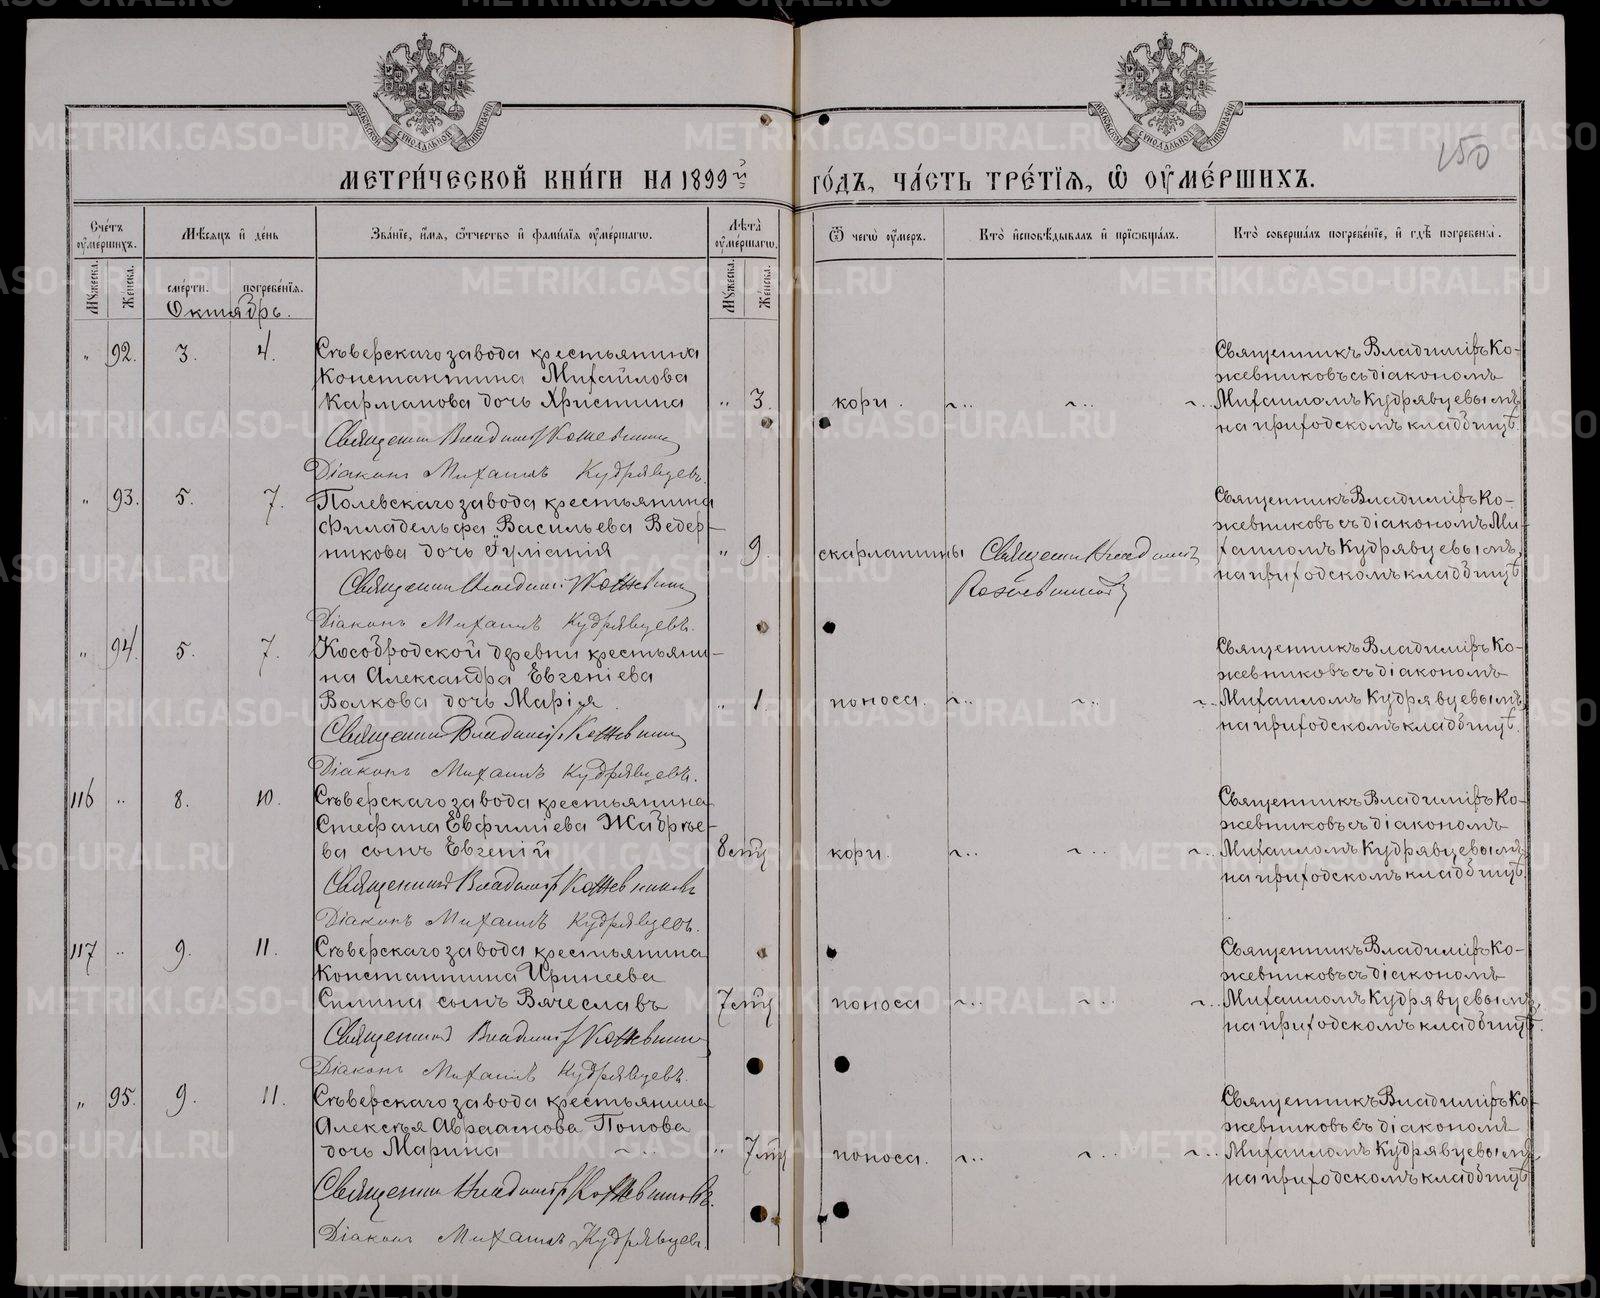 МЕТРИ́ЧЕСКОЙ КНИ́ГИ НА 1899й
ГО́ДЪ, ЧА́СТЬ ТРЕ́ТІѦ, Ѡ҆ ОУ҆МЕ́РШИХЪ.
150
Сче́тъ оу҆ме́ршихъ.
Мѣ́сѧцъ и҆ де́нь
Зва́нїе, и҆́мѧ, ѻ҆́тчество и҆ фами́лїѧ оу҆ме́ршагѡ.
Лѣ́та оу҆ме́ршагѡ.
Ѿ чегѡ̀ оу҆́меръ.
Кто̀ и҆сповѣ́дывалъ и҆ прїѡбща́лъ.
Кто̀ соверша́лъ погребе́нїе, и҆ гдѣ̀ погребены̀.
Мꙋ́жеска.
Же́нска.
сме́рти.
погребе́нїѧ.
Мꙋ́жеска.
Же́нска.
Октябрь.
" 92. 3. 4. Сѣверскаго завода крестьянина
Константина Михайлова
Карманова дочь Христина " 3. кори.
Священник Владимір Кожевников
Діаконъ Михаилъ Кудрявцевъ.
Священникъ Владиміръ Ко-
жевниковъ съ діакономъ
Михаиломъ Кудрявцевымъ
на приходскомъ кладбищѣ.
" 93. 5. 7. Полевскаго завода крестьянина
Филадельфа Васильева Ведер-
никова дочь Іуліанія " 9. скарлатины Священник Владимір
Кожевников
Священник Владимір Кожевников
Діаконъ Михаилъ Кудрявцевъ.
Священникъ Владиміръ Ко-
жевниковъ съ діакономъ Ми-
хаиломъ Кудрявцевымъ,
на приходскомъ кладбищѣ
" 94. 5. 7. Кособродской деревни крестьяни-
на Александра Евгеніева
Волкова дочь Марія. " 1 поноса.
Священник Владимір Кожевников
Діаконъ Михаилъ Кудрявцевъ.
Священникъ Владиміръ Ко-
жевниковъ съ діакономъ
Михаиломъ Кудрявцевымъ,
на приходскомъ кладбищѣ.
116 " 8. 10. Сѣверскаго завода крестьянина
Стефана Евфиміева Жабрѣе-
ва сынъ Евгеній 8 мц кори.
Священник Владимір Кожевниковъ
Діаконъ Михаилъ Кудрявцевъ.
Священникъ Владиміръ Ко-
жевниковъ съ діакономъ
Михаиломъ Кудрявцевымъ
на приходскомъ кладбищѣ.
117 " 9. 11. Сѣверскаго завода крестьянина
Константина Иринеева
Силина сынъ Вячеславъ 7 мц поноса
Священник Владимір Кожевников
Діаконъ Михаилъ Кудрявцевъ.
Священникъ Владиміръ Ко-
жевниковъ съ діакономъ
Михаиломъ Кудрявцевымъ
на приходскомъ кладбищѣ.
" 95. 9. 11. Сѣверскаго завода крестьянина
Алексѣя Авраамова Попова
дочь Марина " 7 мц поноса.
Священник Владимір Кожевниковъ.
Діаконъ Михаилъ Кудрявцевъ.
Священникъ Владиміръ Ко-
жевниковъ съ діакономъ
Михаиломъ Кудрявцевымъ
на приходскомъ кладбищѣ
METRIKI.GASO-URAL.RU